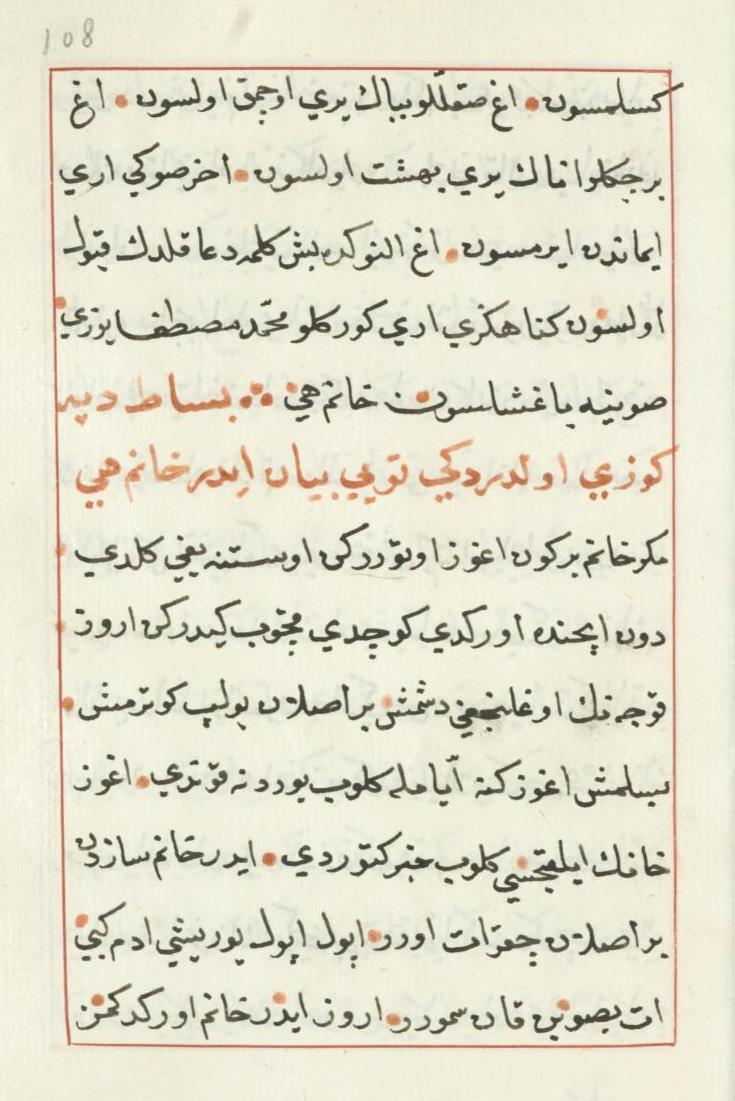 108
كسلمسون • اغ صقللو باباك يري اوچمق اولسون • اغ
برچكلو اناك يري بهشت اولسون • اخر صوكي اري
ايماندن ايرمسون • اغ النوكده بش كلمه دعا قلدك قبول
اولسون كناهكزي ادي كوركلو محمّد مصطفا يوزي
صوينه باغشلسون خانم هي ∴ بساط دپه
كوزي اولدردكي بويي بيان ايدر خانم هي
مكر خانم بركون اغوز اوتوررکن اوستنه يغي كلدي •
دون ايچنده اوركدي كوچدي قچوب كيدركن اروز •
قوجه نك اوغلنجغي دشمش بر اصلان بولپ كوترمش •
بسلمش اغوز كنه ايّامله كلوب يوردنه قوندي • اغوز
خانك ايلقچسي كلوب خبر كتوردي • ايدر خانم سازدن
بر اصلان چقر ات اورر • اپول اپول يوريشي ادم كبي
ات بصوبن قان سمورر • اروز ايدر خانم اوركدكمز